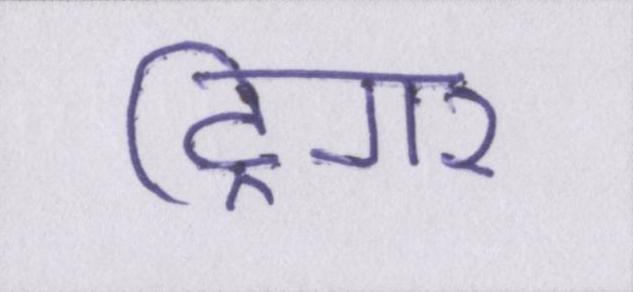 ट्रिगर